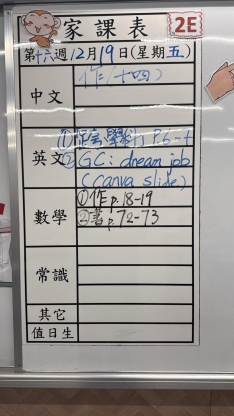 家課表
2E
第十六週12月19日(星期五)
中文
作(十四)
英文
P.6-7
②GC: dream job
(canva slide)
數學
①作p.18-19
②書p.72-73
常識
其它
值日生